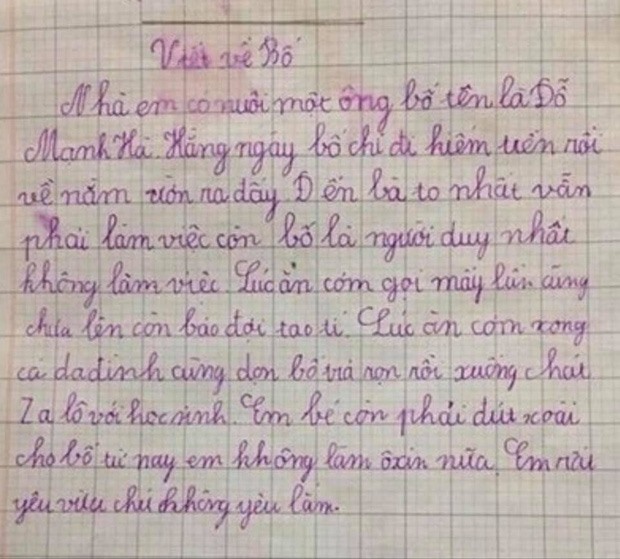 Viết về Bố
Nhà em có nuôi một ông bố tên là Đỗ
Mạnh Hà. Hằng ngày bố chỉ đi hiêm tiền rồi
về nằm ườn ra đấy. Đến bà to nhất vẫn
phải làm việc còn bố là người duy nhất
không làm việc. Lúc ăn cơm gọi mấy lần cũng
chưa lên còn bảo đợi tao tí. Lúc ăn cơm xong
cả da đình cũng dọn bố trả rọn rồi xuống chát
Za lô với học sinh. Em bé còn phải dút xoài
cho bố từ nay em không làm ôxin nữa. Em rất
yêu chứ không yêu lắm.